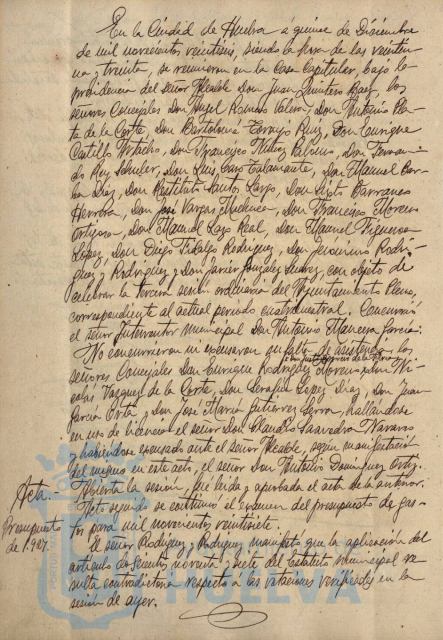 En la Ciudad de Huelva á quince de Diciembre
de mil novecientos veintiseis, siendo la hora de las veintiu-
na y treinta, se reunieron en la Casa Capitular, bajo la
presidencia del señor Alcalde Don Juan Quintero Baez, los
señores Concejales Don Angel Ramos Valero, Don Antonio
de la Corte, Don Bartolomé Ruiz, Don Enrique
Castillo Don Francisco Muñoz Don Fernan-
do Rey Schuler, Don Luis Cano Talamante, Don Manuel Bar-
ba Diaz, Don Restituto Santos Lazo, Don Sixto Barranco
Don José Vargas Don Francisco Moreno
Ortigosa, Don Manuel Lazo Real, Don Manuel Figueroa
Lopez, Don Diego Fidalgo Rodriguez, Don Jerónimo Rodri-
guez y Rodriguez y Don Javier Gonzalez Suarez, con objeto de
celebrar la tercera sesión ordinaria del Ayuntamiento Pleno,
correspondiente al actual periodo cuatrimestral. Concurrió
el señor Interventor municipal Don Antonio Garcia.
No concurrieron ni excusaron su falta de asistencia los
señores Concejales Don Enrique Rodriguez Moreno, Don Ni-
colás Vazquez de la Corte, Don Serafin Lopez Diaz, Don Juan
Garcia Orta y Don José Maria Gutierrez Serra, hallandose
en uso de licencia el señor Don Claudio Saavedra Navarro
y habiéndose excusado ante el señor Alcalde, según manifestación
del mismo en este acto, el señor Don Antonio Dominguez Ortiz.
Acta.- Abierta la sesión, fué leida y aprobada el acta de la anterior.
Presupuesto de 1.927 Acto seguido se continuó el examen del presupuesto de gas-
tos para mil novecientos veintisiete.
El señor Rodriguez y Rodriguez manifestó que la aplicación del
articulo doscientos noventa y siete del Estatuto municipal re-
sulta contradictoria respecto á las votaciones verificadas en la
sesión de ayer.
HUELVA